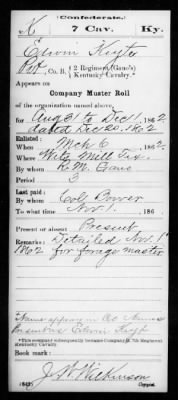 (Confederate.)
K 7 Cav. Ky.
Edwin Kuyte
Pvt, Co. B, 2 Regiment (Gano's) Kentucky Cavalry.*
Appears on
Company Muster Roll
of the organization named above,
for Aug 31 to Dec 1, 1862.
dated Dec 20, 1862
Enlisted:
When Mch 6, 1862.
Where Mill Tex.
By whom R. M. Gano
Period 3
Last paid:
By whom Col. Bower
To what time Nov. 1, 186 .
Present or absent Present
Remarks: Detailed Nov. 1st
1862 for forage master
Name appears in Col. Names
Present as Edwin Kuyt
*This company subsequently became Company 7th Regiment Kentucky Cavalry.
Book mark:
J W Wilkinson
(642) Copyist.